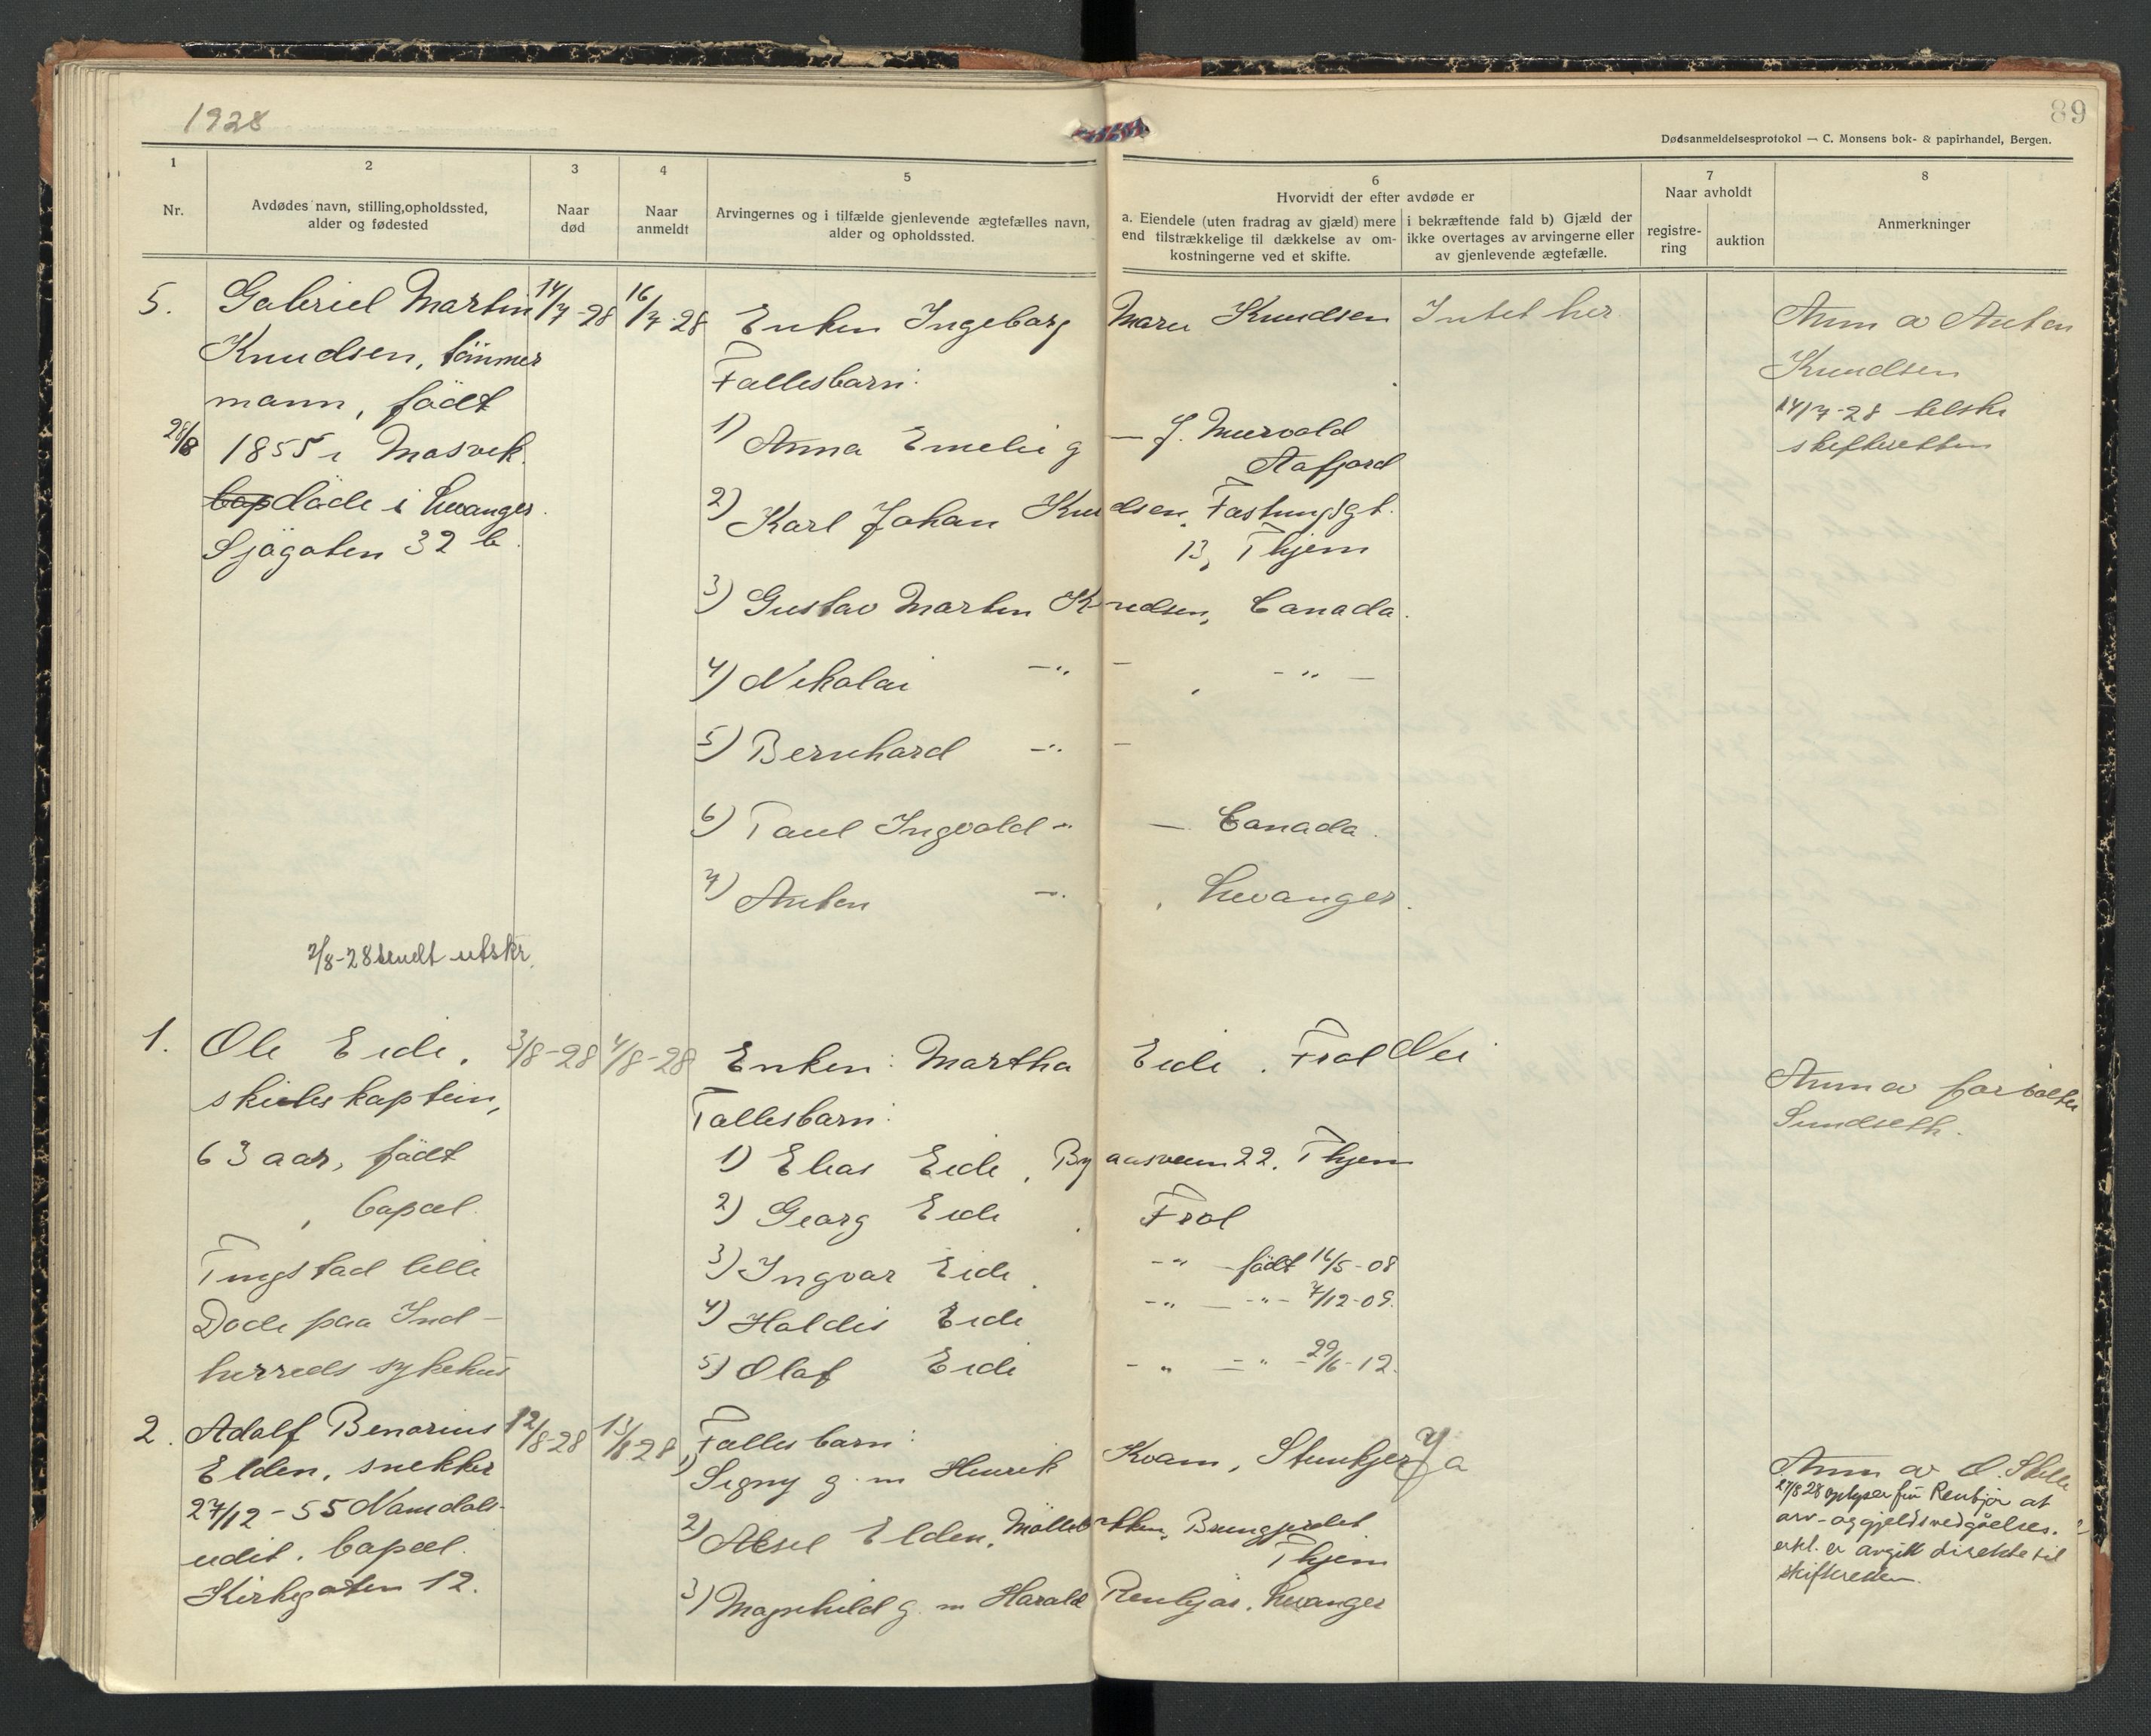 1928
89
Dødsanmeldelsesprotokol — C. Monsens bok- & papirhandel, Bergen.
1
Nr.
2
Avdødes navn, stilling, opholdssted,
alder og fødested
3
Naar
død
4
Naar
anmeldt
5
Arvingernes og i tilfælde gjenlevende ægtefælles navn,
alder og opholdssted.
6
Hvorvidt der efter avdøde er
a. Eiendele (uten fradrag av gjæld) mere
end tilstrækkelige til dækkelse av om-
kostningerne ved et skifte.
i bekræftende fald b) Gjæld der
ikke overtages av arvingerne eller
av gjenlevende ægtefælle.
7
Naar avholdt
registre-
ring
auktion
8
Anmerkninger
5.
Gabriel Martin
Knudsen, tömmer
mann, født
28/8
1855 i Mosvik.
bop döde i Levanger.
Sjögaten 32 b.
14/7-28
16/7-28
Enken Ingeborg Marie Knudsen
Fallesbarn:
1) Anna Emelie g — J. Murvold
Aafjord
2) Karl Johan Knudsen, Fæstningsgt.
13, Thjem
3) Gustav Martin Knudsen, Canada.
4) Nikolai —"— , —"—
5) Bernhard —"—
6) Paul Ingvald —"— Canada.
7) Anton —"— , Levanger.
Intet her
Anm av Anton
Knudsen
14/7-28 telski
skifteretten
2/8-28 sendt utskr.
1.
Ole Eide,
skibskaptein,
63 aar, født
, bopæl.
Tingstad lille
Døde paa Ind-
herreds sykehus
3/8-28
4/8-28
Enken: Martha Eide. Frol
Fallesbarn:
1) Elias Eide, Byaasveien 22. Thjem
2) Georg Eide . Frol
3) Ingvar Eide. —"— født 16/5-08
4) Haldis Eide —"— —"— 7/12-09.
5) Olaf Eide —"— —"— 29/6-12.
Nei
Anm av forvalter
Sundseth.
2.
Adolf Benonius
Elden, snekker
27/12-55 Namdals-
eidet. bopæl.
Kirkegaten 12.
12/8-28
13/8-28
Falles barn:
1) Signy g. m Henrik Kvam, Stenkjer
2) Aksel Elden, Möllebakken, Bungjordet
Thjem
3) Magnhild g. m Harald Renbjør. Levanger
Ja
Anm av O.
27/8 28 oplyser fru Renbjör at
arv- og gjeldsvedgåelses.
erkl. er avgitt direkte til
skifteretten.